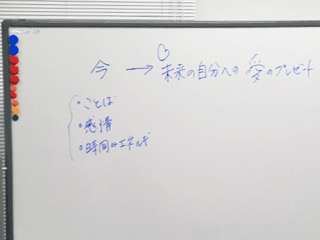 今 → 未来の自分への 愛のプレゼント
・ことば
・感情
・時間やエネルギ